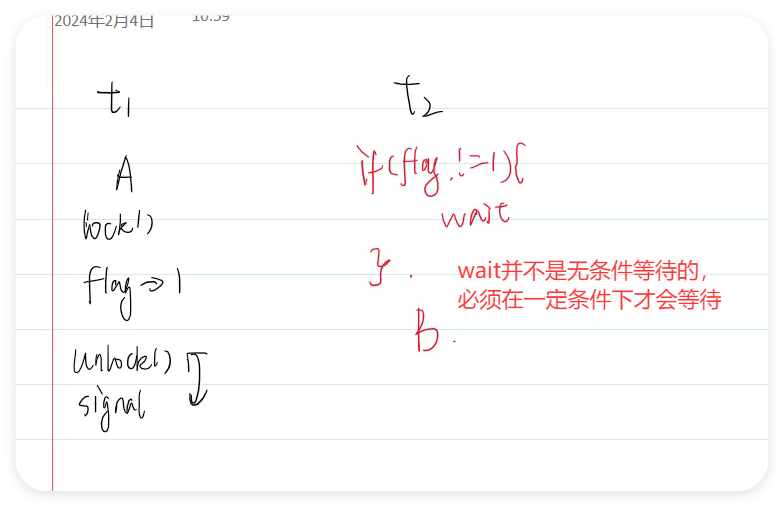 2024年2月4日 10:59
t1
A
lock()
flag → 1
unlock()
signal
t2
if(flag != 1){
wait
}.
wait并不是无条件等待的,
必须在一定条件下才会等待
B.